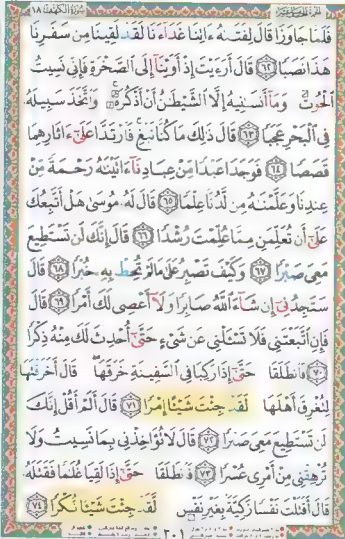 الجزء الخامس عشر سورة الكهف ١٨
فَلَمَّا جَاوَزَا قَالَ لِفَتَىٰهُ ءَاتِنَا غَدَآءَنَا لَقَدْ لَقِينَا مِن سَفَرِنَا
هَٰذَا نَصَبًا ٦٢ قَالَ أَرَءَيْتَ إِذْ أَوَيْنَآ إِلَى ٱلصَّخْرَةِ فَإِنِّى نَسِيتُ
ٱلْحُوتَ وَمَآ أَنسَىٰنِيهُ إِلَّا ٱلشَّيْطَٰنُ أَنْ أَذْكُرَهُۥ ۚ وَٱتَّخَذَ سَبِيلَهُۥ
فِى ٱلْبَحْرِ عَجَبًا ٦٣ قَالَ ذَٰلِكَ مَا كُنَّا نَبْغِ ۚ فَٱرْتَدَّا عَلَىٰٓ ءَاثَارِهِمَا
قَصَصًا ٦٤ فَوَجَدَا عَبْدًا مِّنْ عِبَادِنَآ ءَاتَيْنَٰهُ رَحْمَةً مِّنْ
عِندِنَا وَعَلَّمْنَٰهُ مِن لَّدُنَّا عِلْمًا ٦٥ قَالَ لَهُۥ مُوسَىٰ هَلْ أَتَّبِعُكَ
عَلَىٰٓ أَن تُعَلِّمَنِ مِمَّا عُلِّمْتَ رُشْدًا ٦٦ قَالَ إِنَّكَ لَن تَسْتَطِيعَ
مَعِىَ صَبْرًا ٦٧ وَكَيْفَ تَصْبِرُ عَلَىٰ مَا لَمْ تُحِطْ بِهِۦ خُبْرًا ٦٨ قَالَ
سَتَجِدُنِىٓ إِن شَآءَ ٱللَّهُ صَابِرًا وَلَآ أَعْصِى لَكَ أَمْرًا ٦٩ قَالَ
فَإِنِ ٱتَّبَعْتَنِى فَلَا تَسْـَٔلْنِى عَن شَىْءٍ حَتَّىٰٓ أُحْدِثَ لَكَ مِنْهُ ذِكْرًا
٧٠ فَٱنطَلَقَا حَتَّىٰٓ إِذَا رَكِبَا فِى ٱلسَّفِينَةِ خَرَقَهَا ۖ قَالَ أَخَرَقْتَهَا
لِتُغْرِقَ أَهْلَهَا لَقَدْ جِئْتَ شَيْـًٔا إِمْرًا ٧١ قَالَ أَلَمْ أَقُلْ إِنَّكَ
لَن تَسْتَطِيعَ مَعِىَ صَبْرًا ٧٢ قَالَ لَا تُؤَاخِذْنِى بِمَا نَسِيتُ وَلَا
تُرْهِقْنِى مِنْ أَمْرِى عُسْرًا ٧٣ فَٱنطَلَقَا حَتَّىٰٓ إِذَا لَقِيَا غُلَٰمًا فَقَتَلَهُۥ
قَالَ أَقَتَلْتَ نَفْسًا زَكِيَّةًۢ بِغَيْرِ نَفْسٍ لَّقَدْ جِئْتَ شَيْـًٔا نُّكْرًا ٧٤
٣٠١